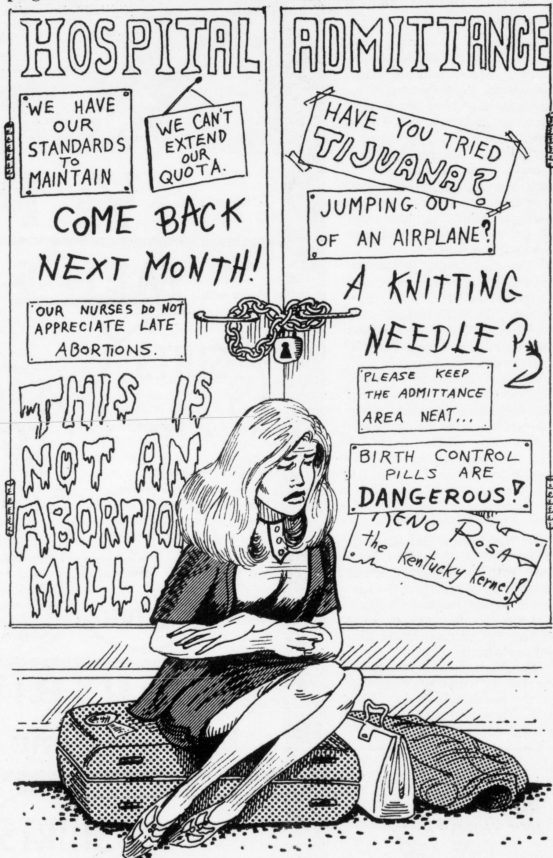 HOSPITAL ADMITTANCE
WE HAVE
OUR
STANDARDS
TO
MAINTAIN
WE CAN'T
EXTEND
OUR
QUOTA.
COME BACK
NEXT MONTH!
OUR NURSES DO NOT
APPRECIATE LATE
ABORTIONS.
THIS IS
NOT AN
ABORTION
MILL!
HAVE YOU TRIED
TIJUANA?
JUMPING OUT
OF AN AIRPLANE?
A KNITTING
NEEDLE?
PLEASE KEEP
THE ADMITTANCE
AREA NEAT...
BIRTH CONTROL
PILLS ARE
DANGEROUS!
KENO ROSA
the kentucky kernel